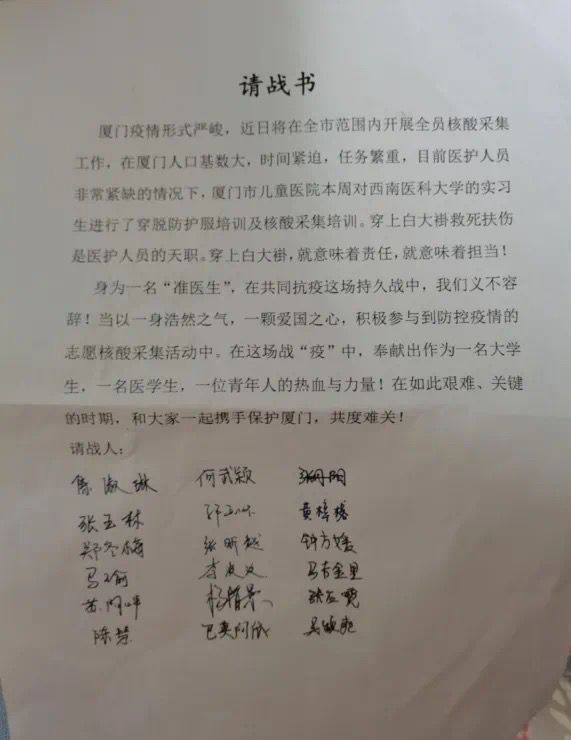 请战书
厦门疫情形式严峻，近日将在全市范围内开展全员核酸采集
工作，在厦门人口基数大，时间紧迫，任务繁重，目前医护人员
非常紧缺的情况下，厦门市儿童医院本周对西南医科大学的实习
生进行了穿脱防护服培训及核酸采集培训。穿上白大褂救死扶伤
是医护人员的天职。穿上白大褂，就意味着责任，就意味着担当！
身为一名“准医生”，在共同抗疫这场持久战中，我们义不容
辞！当以一身浩然之气，一颗爱国之心，积极参与到防控疫情的
志愿核酸采集活动中。在这场战“疫”中，奉献出作为一名大学
生，一名医学生，一位青年人的热血与力量！在如此艰难、关键
的时期，和大家一起携手保护厦门，共度难关！
请战人：
焦淑琳 何武颖
张玉林
郑冬梅 张昕越 钟方媛
陈慧